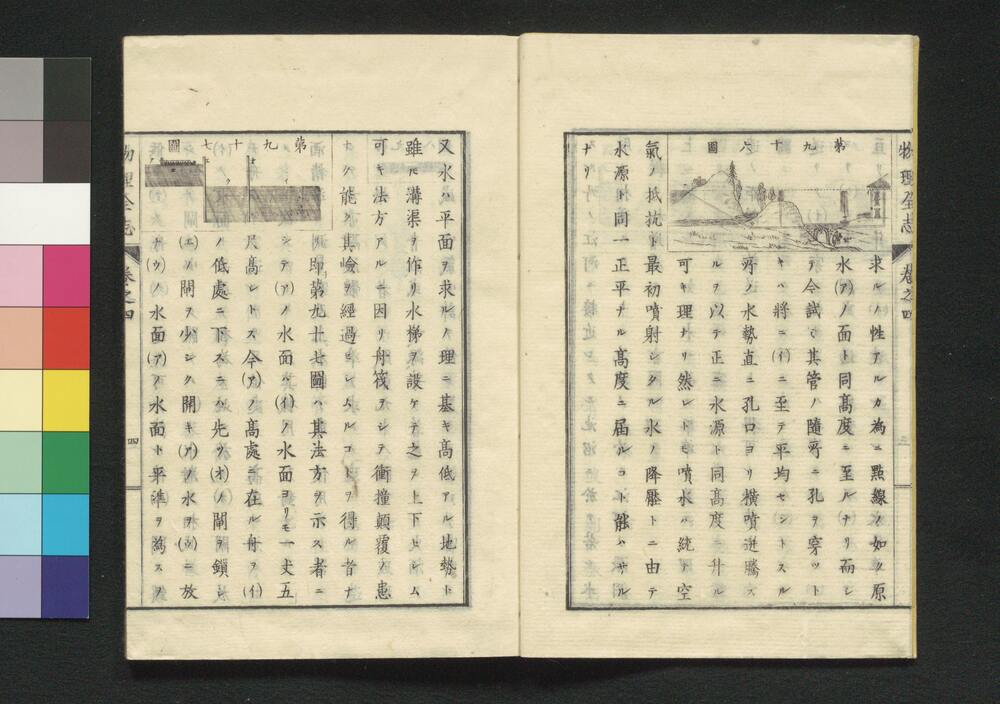 物理全志
卷之四
第九十六圖
求ルノ性アルカ為ニ點線ノ如ク原
水(ア)ノ面ト同髙度ニ至ルナリ而シ
テ今試ニ其管ノ隨所ニ孔ヲ穿ツト
キハ將ニ(イ)ニ至テ平均セントスル
所ノ水勢直ニ孔口ヨリ横噴迸騰ス
ルヲ以テ正ニ水源ト同髙度ニ升ル
可キ理ナリ然レトモ噴水ハ統テ空
氣ノ抵抗ト最初噴射シタル水ノ降壓トニ由テ
水源ト同一正平ナル髙度ニ届ルコト能ハサル
ナリ
又水ハ平面ヲ求ルノ理ニ基キ髙低アル地勢ト
雖ㇳモ溝渠ヲ作リ水梯ヲ設ケテ之ヲ上下セシム
可キ法方アルニ因リ舟筏ヲシテ衝撞顛覆ノ患
ナク能ク其嶮ヲ經過セシムルコトヲ得ル者ナ
第九十七圖
リ即第九十七圖ハ其法方ヲ示ス者ニ
シテ(ア)ノ水面ハ(イ)ノ水面ヨリモ一丈五
尺髙シトス今(ア)ノ髙處ニ在ル舟ヲ(イ)
ノ低處ニ下スニハ先ツ(オ)ノ閘ヲ鎖シ
(エ)ノ閘ヲ少シク開キ(ア)ノ水ヲ(ウ)ニ放
チ(ウ)ノ水面(ア)ノ水面ト平準ヲ為スヲ
物理全志
卷之四
四